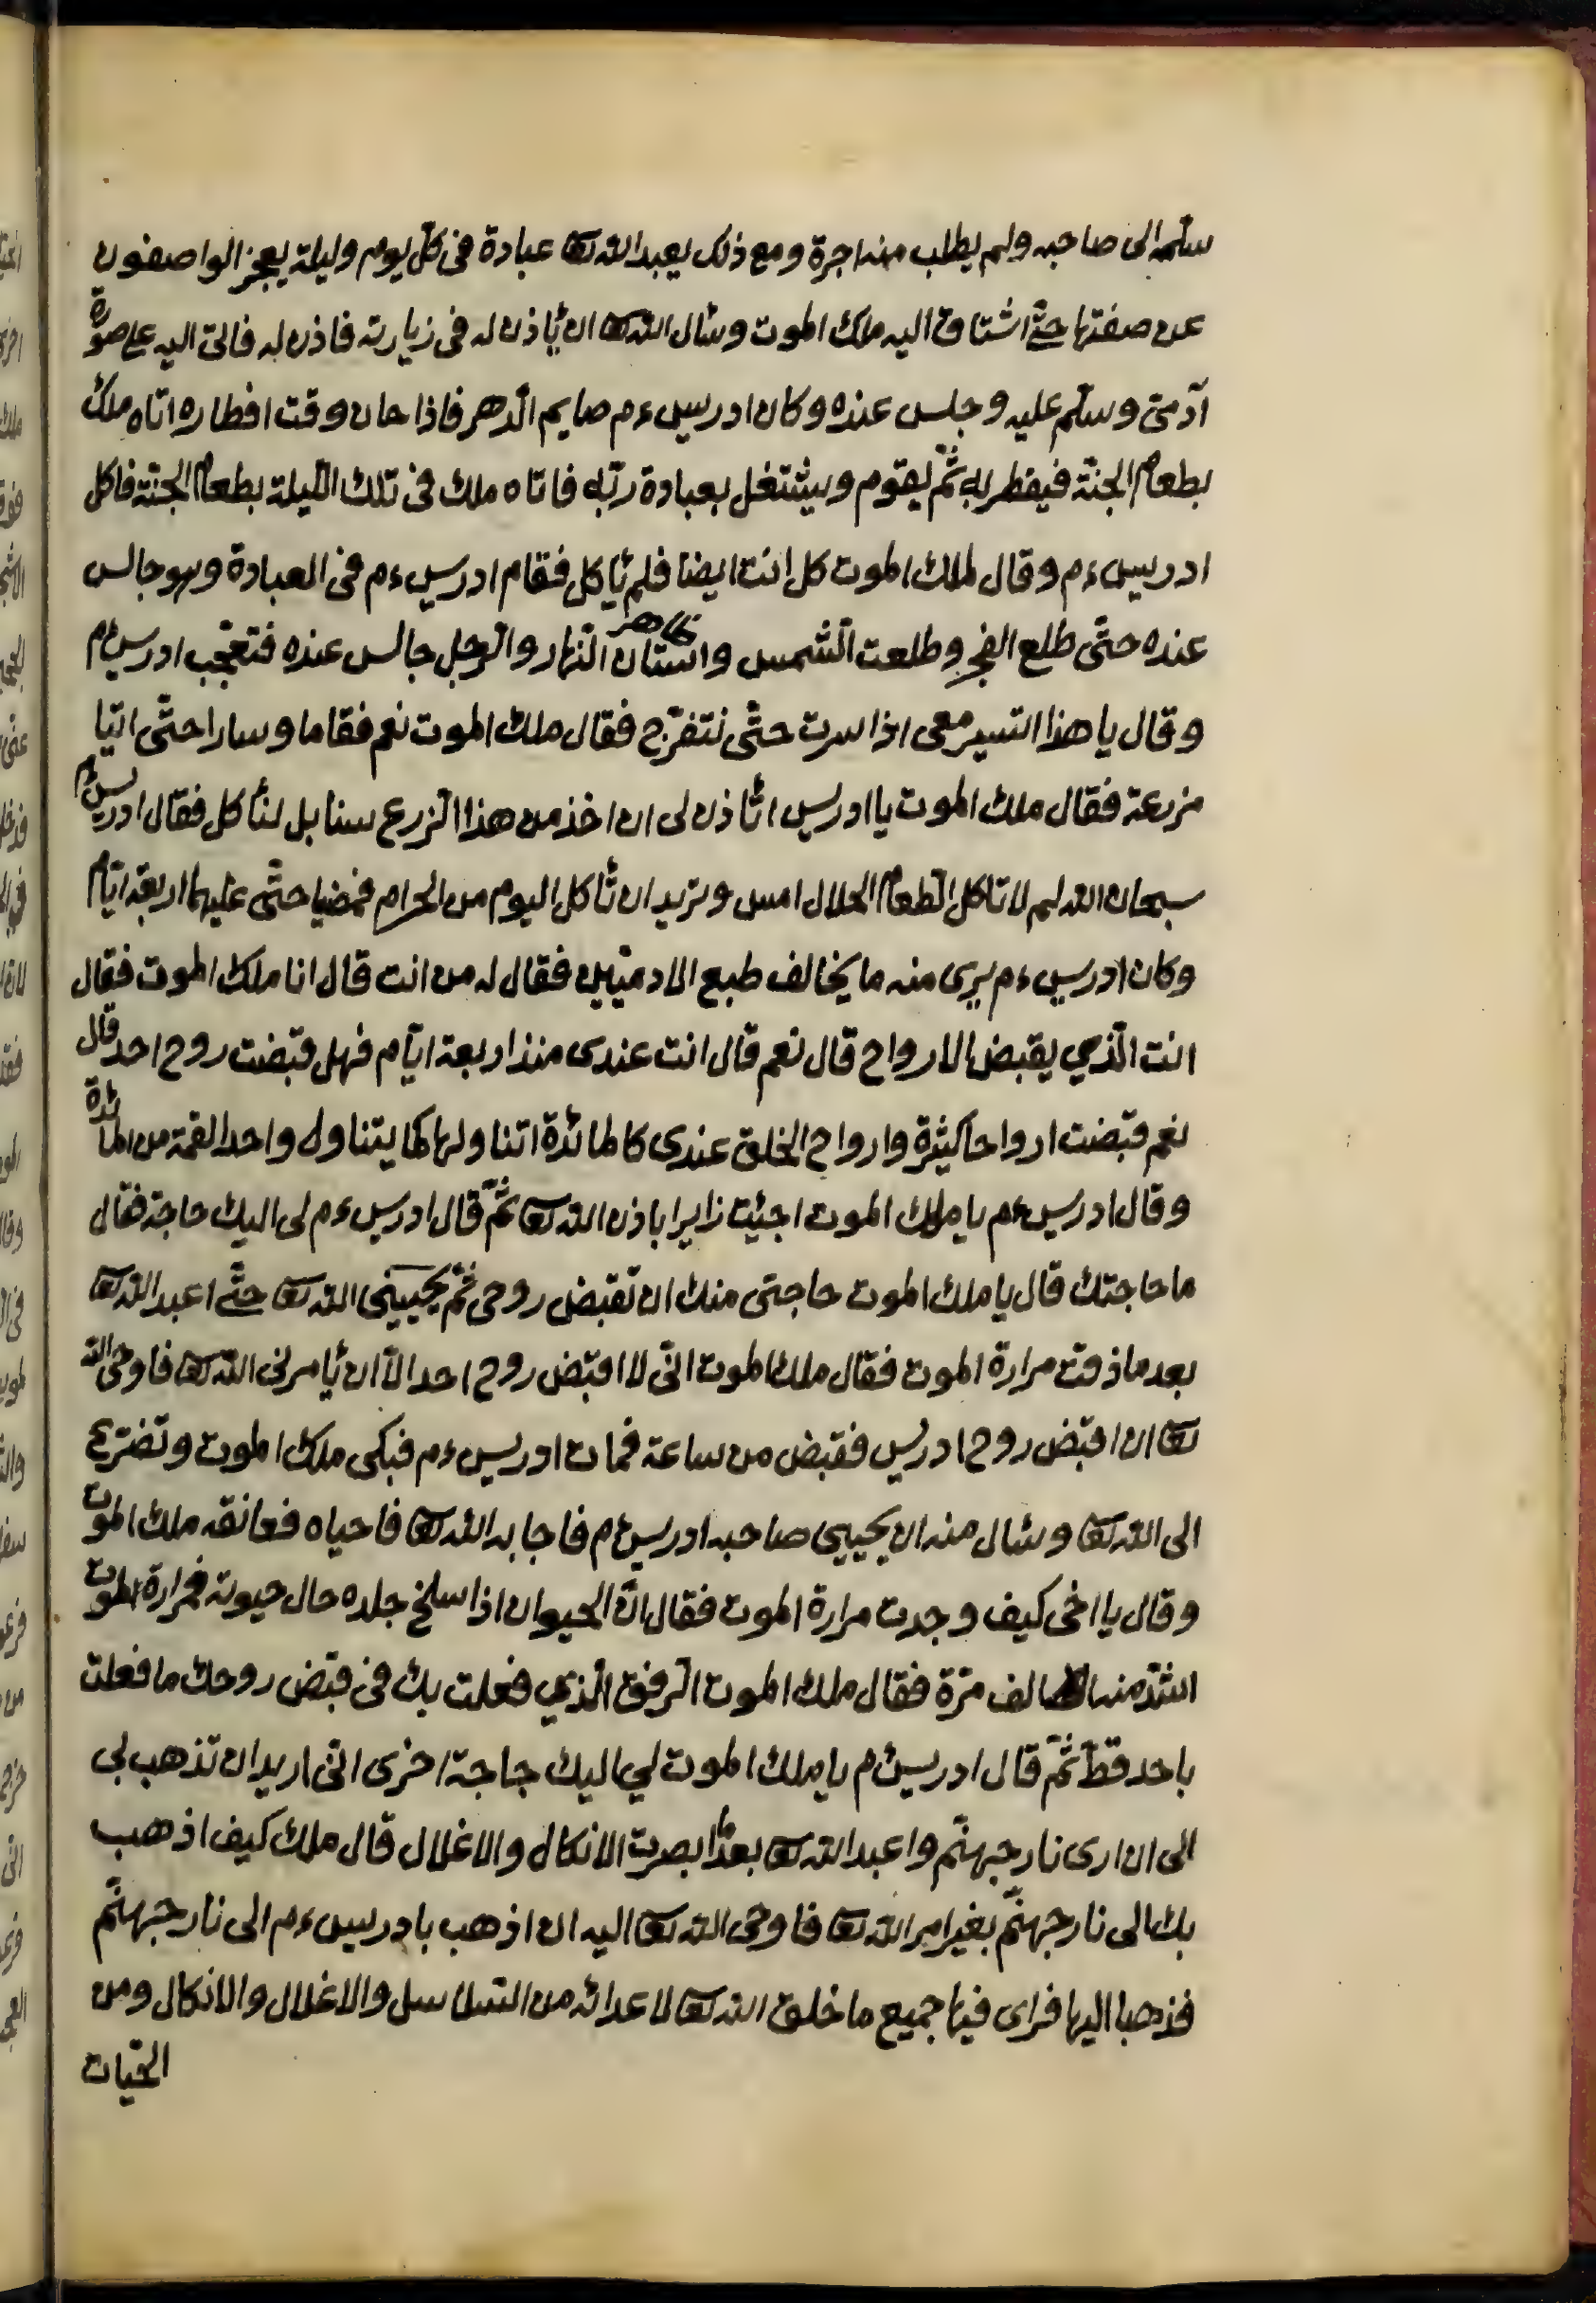 سلّمه الى صاحبه ولم يطلب منه اجرة ومع ذلك يعبد الله تعا عبادة فى كلّ يوم وليلة يعجز الواصفون
عن صفتها حتّى اشتاق اليه ملك الموت وسٔال الله تعا ان ئاذن له فى زيارته فاذن له فاتى اليه على صورة
آدمىّ وسلّم عليه وجلس عنده وكان ادريس ءم صايم الدّهر فاذا حان وقت افطاره اتاه ملك
بطعام الجنّة فيفطر به ثمّ يقوم ويشتغل بعبادة ربّه فاتاه ملك فى تلك اللّيلة بطعام الجنّة فاكل
ادريس ءم وقال لملك الموت كل انت ايضا فلم ئاكل فقام ادريس ءم فى العبادة وهو جالس
عنده حتّى طلع الفجر وطلعت الشّمس النّهار والرّجل جالس عنده فتعجّب ادريس ءم
وقال يا هذا التسير معى اذا سرت حتّى نتفرّج فقال ملك الموت نعم فقاما وسارا حتّى اتيا
مزرعة فقال ملك الموت يا ادريس اتٔاذن لى ان اخذ من هذا الزرع سنابل لنٔاكل فقال ادريس ءم
سبحان الله لم لا تاكل الطّعام الحلال امس وتريد ان تٔاكل اليوم من الحرام فمضيا حتّى عليهما اربعة ايّام
وكان ادريس ءم يرى منه ما يخالف طبع الادميّين فقال له من انت قال انا ملك الموت فقال
انت الّذي يقبض الارواح قال نعم قال انت عندى منذ اربعة ايّام فهل قبضت روح احد قال
نعم قبضت ارواحا كيثرة وارواح الخلق عندى كالمائدة اتناولها كما يتناول واحد القمة من المائدة
وقال ادريس ءم يا ملك الموت اجئت زايرا باذن الله تعا ثمّ قال ادريس ءم لى اليك حاجة فقال
ما حاجتك قال يا ملك الموت حاجتى منك ان تقبض روحى ثمّ يحيينى الله تعا حتّى اعبد الله تعا
بعد ما ذقت مرارة الموت فقال ملك الموت انّى لا اقبض روح احد الاّ ان ئامرنى الله تعا فاوحى الله
تعا ان اقبض روح ادريس فقبض من ساعة فمات ادريس ءم فبكى ملك الموت وتضرّع
الى الله تعا وسٔال منه ان يحيي صاحبه ادريس ءم فاجابه الله تعا فاحياه فعانقه ملك الموت
وقال يا اخى كيف وجدت مرارة الموت فقال انّ الحيوان اذا سلخ جلده حال حيوته فمرارة الموت
اشدّ منه الف مرّة فقال ملك الموت الرفق الّذي فعلت بك فى قبض روحك ما فعلت
باحد قطّ ثمّ قال ادريس ءم يا ملك الموت لي اليك حاجة اخرى انّى اريد ان تذهب بى
الى ان ارى نار جهنّم واعبد الله تعا بعد ما ابصرت الانكال والاغلال قال ملك كيف اذهب
بك الى نار جهنّم بغير امر الله تعا فاوحى الله تعا اليه ان اذهب بادريس ءم الى نار جهنّم
فذهبا اليها فراى فيها جميع ما خلق الله تعا لاعدائه من السّلاسل والاغلال والانكال ومن
الحيّات